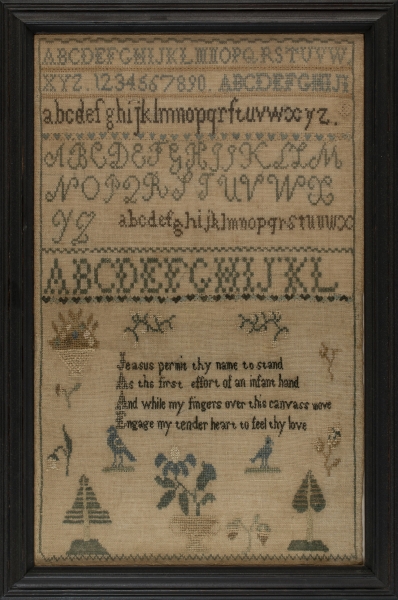 ABCDEFGHIJKLMNOPQRSTUVW
XYZ. 1234567890. ABCDEFGHIJ
abcdefghijklmnopqrstuvwxyz.
ABCDEFGHIJKLM
NOPQRSTUVWX
YZ abcdefghijklmnopqrstuvwx
ABCDEFGHIJKL
Jeasus permit thy name to stand
As the first effort of an infant hand
And while my fingers over this canvass move
Engage my tender heart to feel thy love